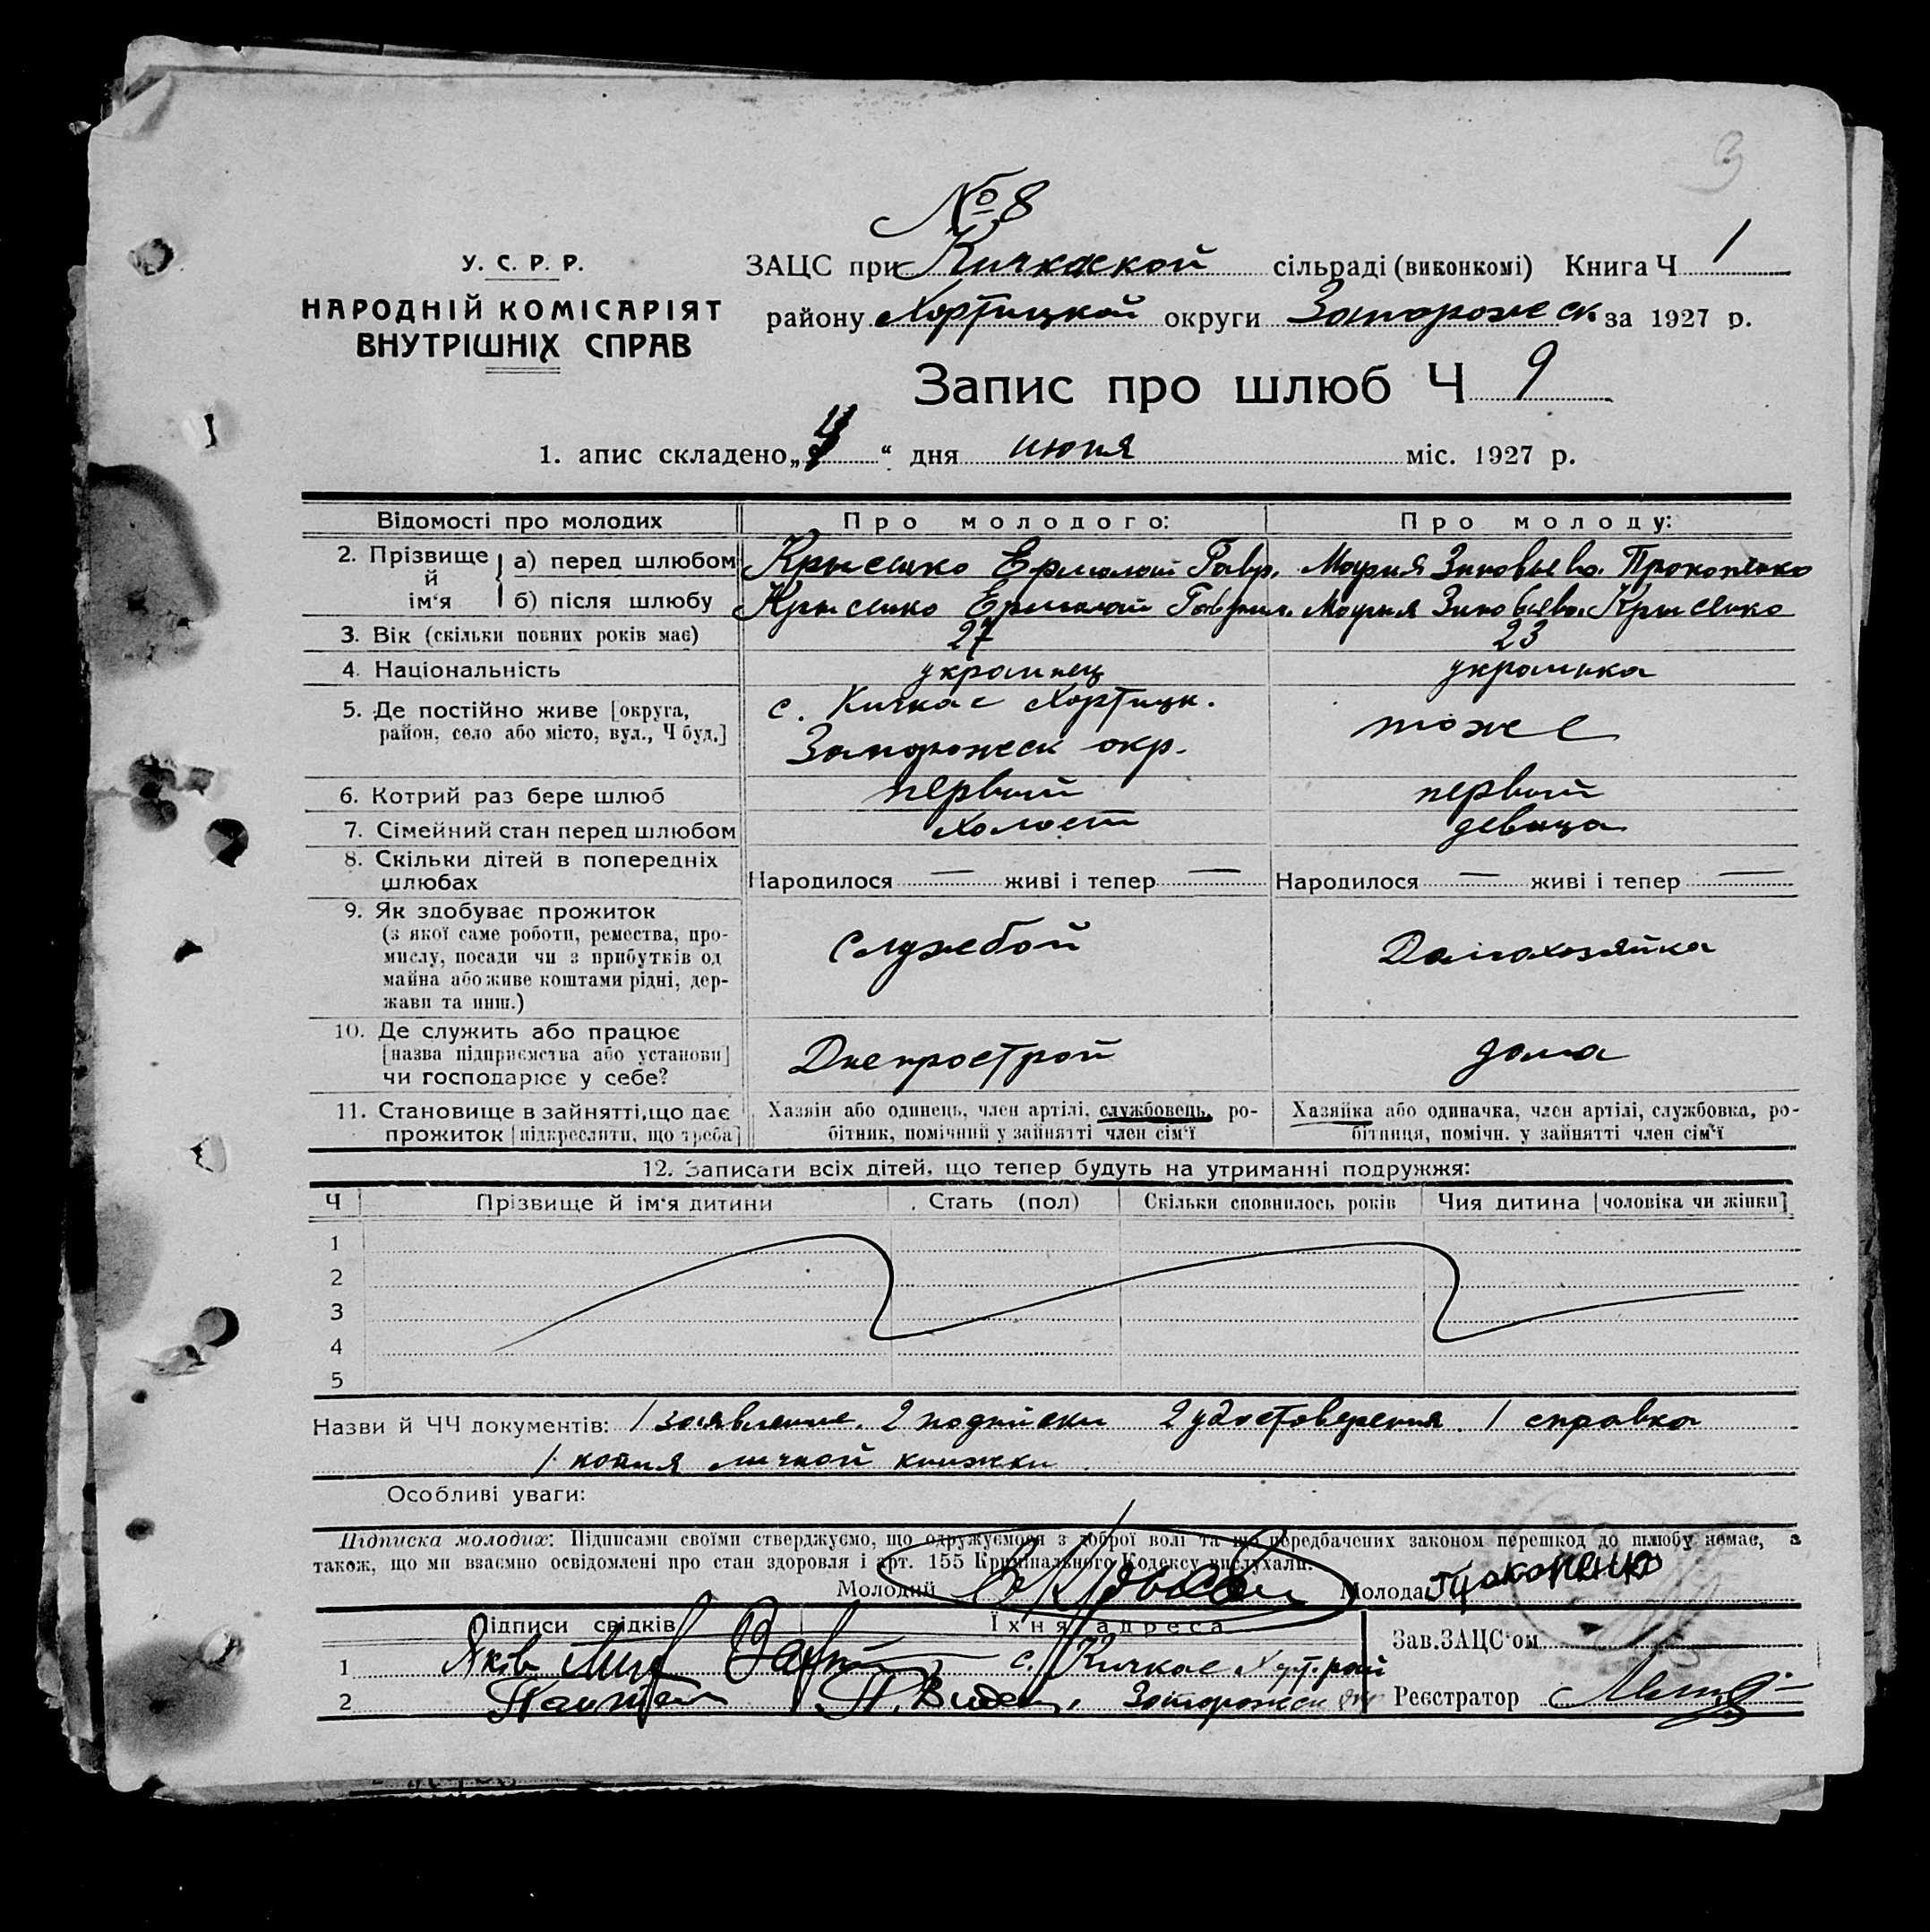 № 8
У. С. Р. Р.
НАРОДНІЙ КОМІСАРІЯТ
ВНУТРІШНІХ СПРАВ
ЗАЦС при Кичкаской сільраді (виконкомі) Книга Ч 1
району Хортицкой округи Запорожск. за 1927 р.
Запис про шлюб Ч 9
1. апис складено „ “ дня июня міс. 1927 р.
Відомості про молодих Про молодого: Про молоду:
2. Прізвище й ім‘я
а) перед шлюбом Крысенко Ермолай Гавр. Мария Зиновьева Прокопенко
б) після шлюбу Крысенко Ермолай Гаврил. Мария Зиновьева Крысенко
3. Вік (скільки повних років має) 27 23
4. Національність украинец украинка
5. Де постійно живе [округа, район, село або місто, вул., Ч буд.] с. Кичкас Хортицк. Запорожск окр. тоже
6. Котрий раз бере шлюб первый первый
7. Сімейний стан перед шлюбом холост девица
8. Скільки дітей в попередніх шлюбах Народилося — живі і тепер — Народилося — живі і тепер —
9. Як здобуває прожиток
(з якої саме роботи, ремества, про-
мислу, посади чи з прибутків од
майна або живе коштами рідні, дер-
жави та инш.)
службой Домохозяйка
10. Де служить або працює
[назва підприємства або установи]
чи господарює у себе?
Днепрострой дома
11. Становище в зайнятті, що дає
прожиток [підкреслити, що треба]
Хазяїн або одинець, член артілі, службовець, ро-
бітник, помічний у зайнятті член сім‘ї
Хазяйка або одиначка, член артілі, службовка, ро-
бітниця, помічн. у зайнятті член сім‘ї
12. Записати всіх дітей, що тепер будуть на утриманні подружжя:
Ч Прізвище й ім‘я дитини Стать (пол) Скільки сповнилось років Чия дитина [чоловіка чи жінки]
1
2
3
4
5
Назви й ЧЧ документів: 1 заявление. 2 подписки 2 удостоверения. 1 справка
1 копия личной книжки.
Особливі уваги:
Підписка молодих: Підписами своїми стверджуємо, що одружуємося з доброї волі та що передбачених законом перешкод до шлюбу немає, а
також, що ми взаємно освідомлені про стан здоровля і арт. 155 Кримінального Кодексу вислухали.
Молодий Молода Прокопенко
Підписи свідків Їхня адреса
1 Яков с. Кичкас Хорт. рай
2 Запорожск окр
Зав. ЗАЦС‘ом
Реєстратор